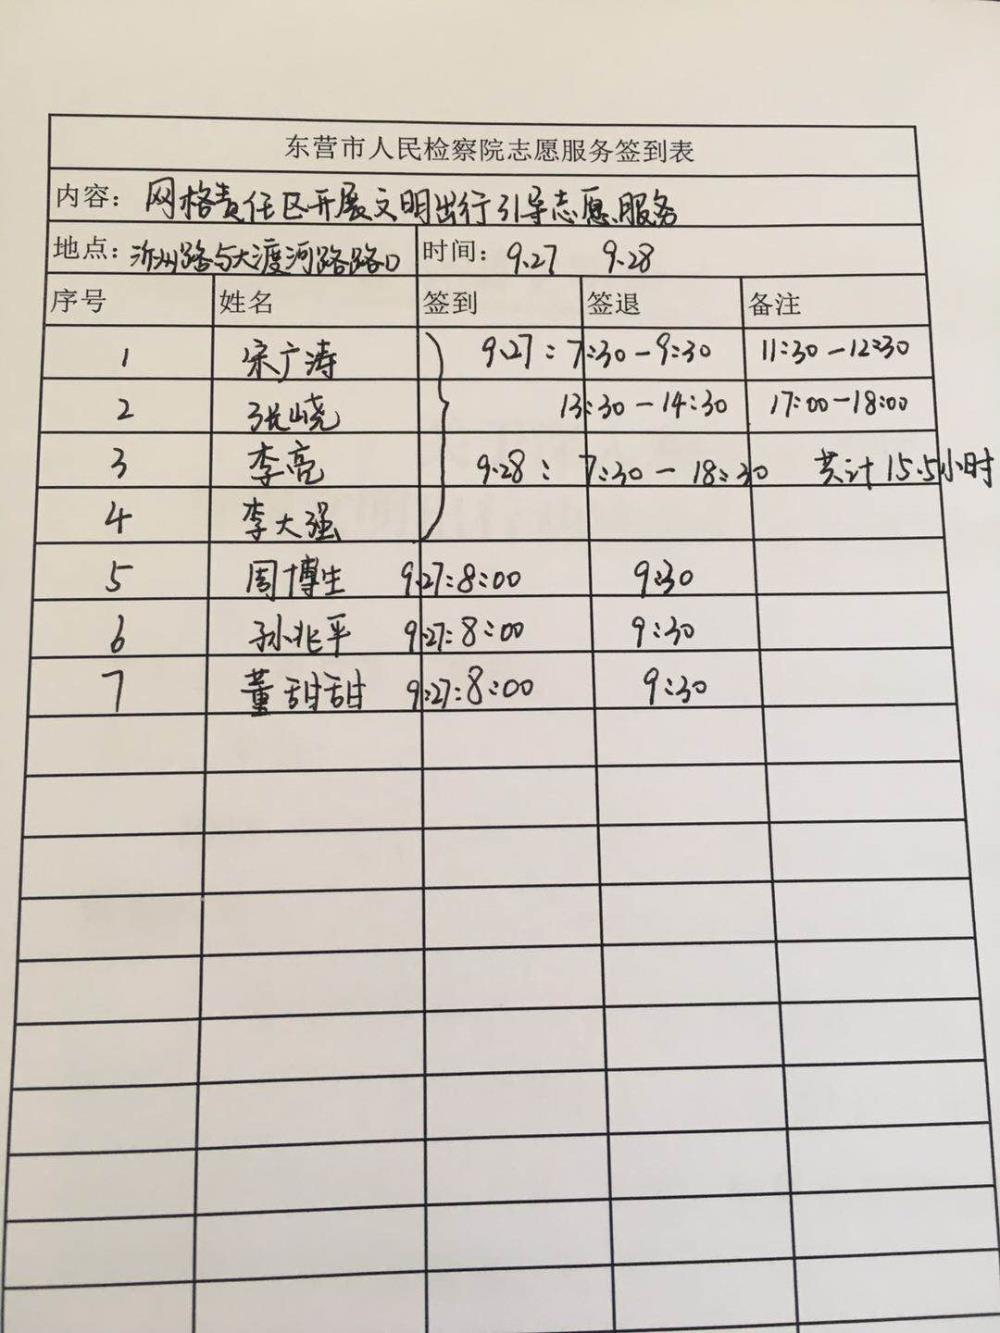 东营市人民检察院志愿服务签到表
内容: 网格责任区开展文明出行引导志愿服务
地点: 沂州路与大渡河路路口 时间: 9.27 9.28
序号 姓名 签到 签退 备注
1 宋广涛 9.27: 7:30-9:30 11:30-12:30
2 张峣 13:30-14:30 17:00-18:00
3 李亮 9.28: 7:30-18:30 共计15.5小时
4 李大强
5 周博生 9.27:8:00 9:30
6 孙兆平 9.27:8:00 9:30
7 董甜甜 9:27:8:00 9:30